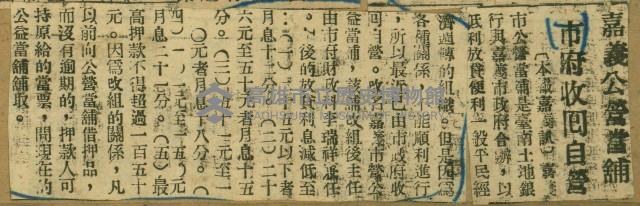 嘉義公營當舖
市府收回自營
〔本報嘉義訊〕嘉
市公營當舖是臺南土地銀
行與嘉義市政府合辦,以
低利放貸便利一般平民經
濟週轉的機構。但是因為
各種關係,不能順利進行
,所以最近已由市政府收
回自營。改為嘉義市營公
益當舖,該舖改組後主任
由市付財政科李瑞祥兼任
。今後的放款利息減低至
:(一)五元以下者
月息十二分。(二)二十
六元至五十元者月息十五
分。(三)五十一元至一
〇〇元者月息十八分。(
四)一〇一元至一五〇元
月息二十分。(五)最
高押款不得超過一百五十
元。因為改組的關係,凡
以前向公營當舖借押品,
而沒有逾期的,押款人可
持原給的當票,問現在的
公益當舖贖取。
高雄市立歷史博物館